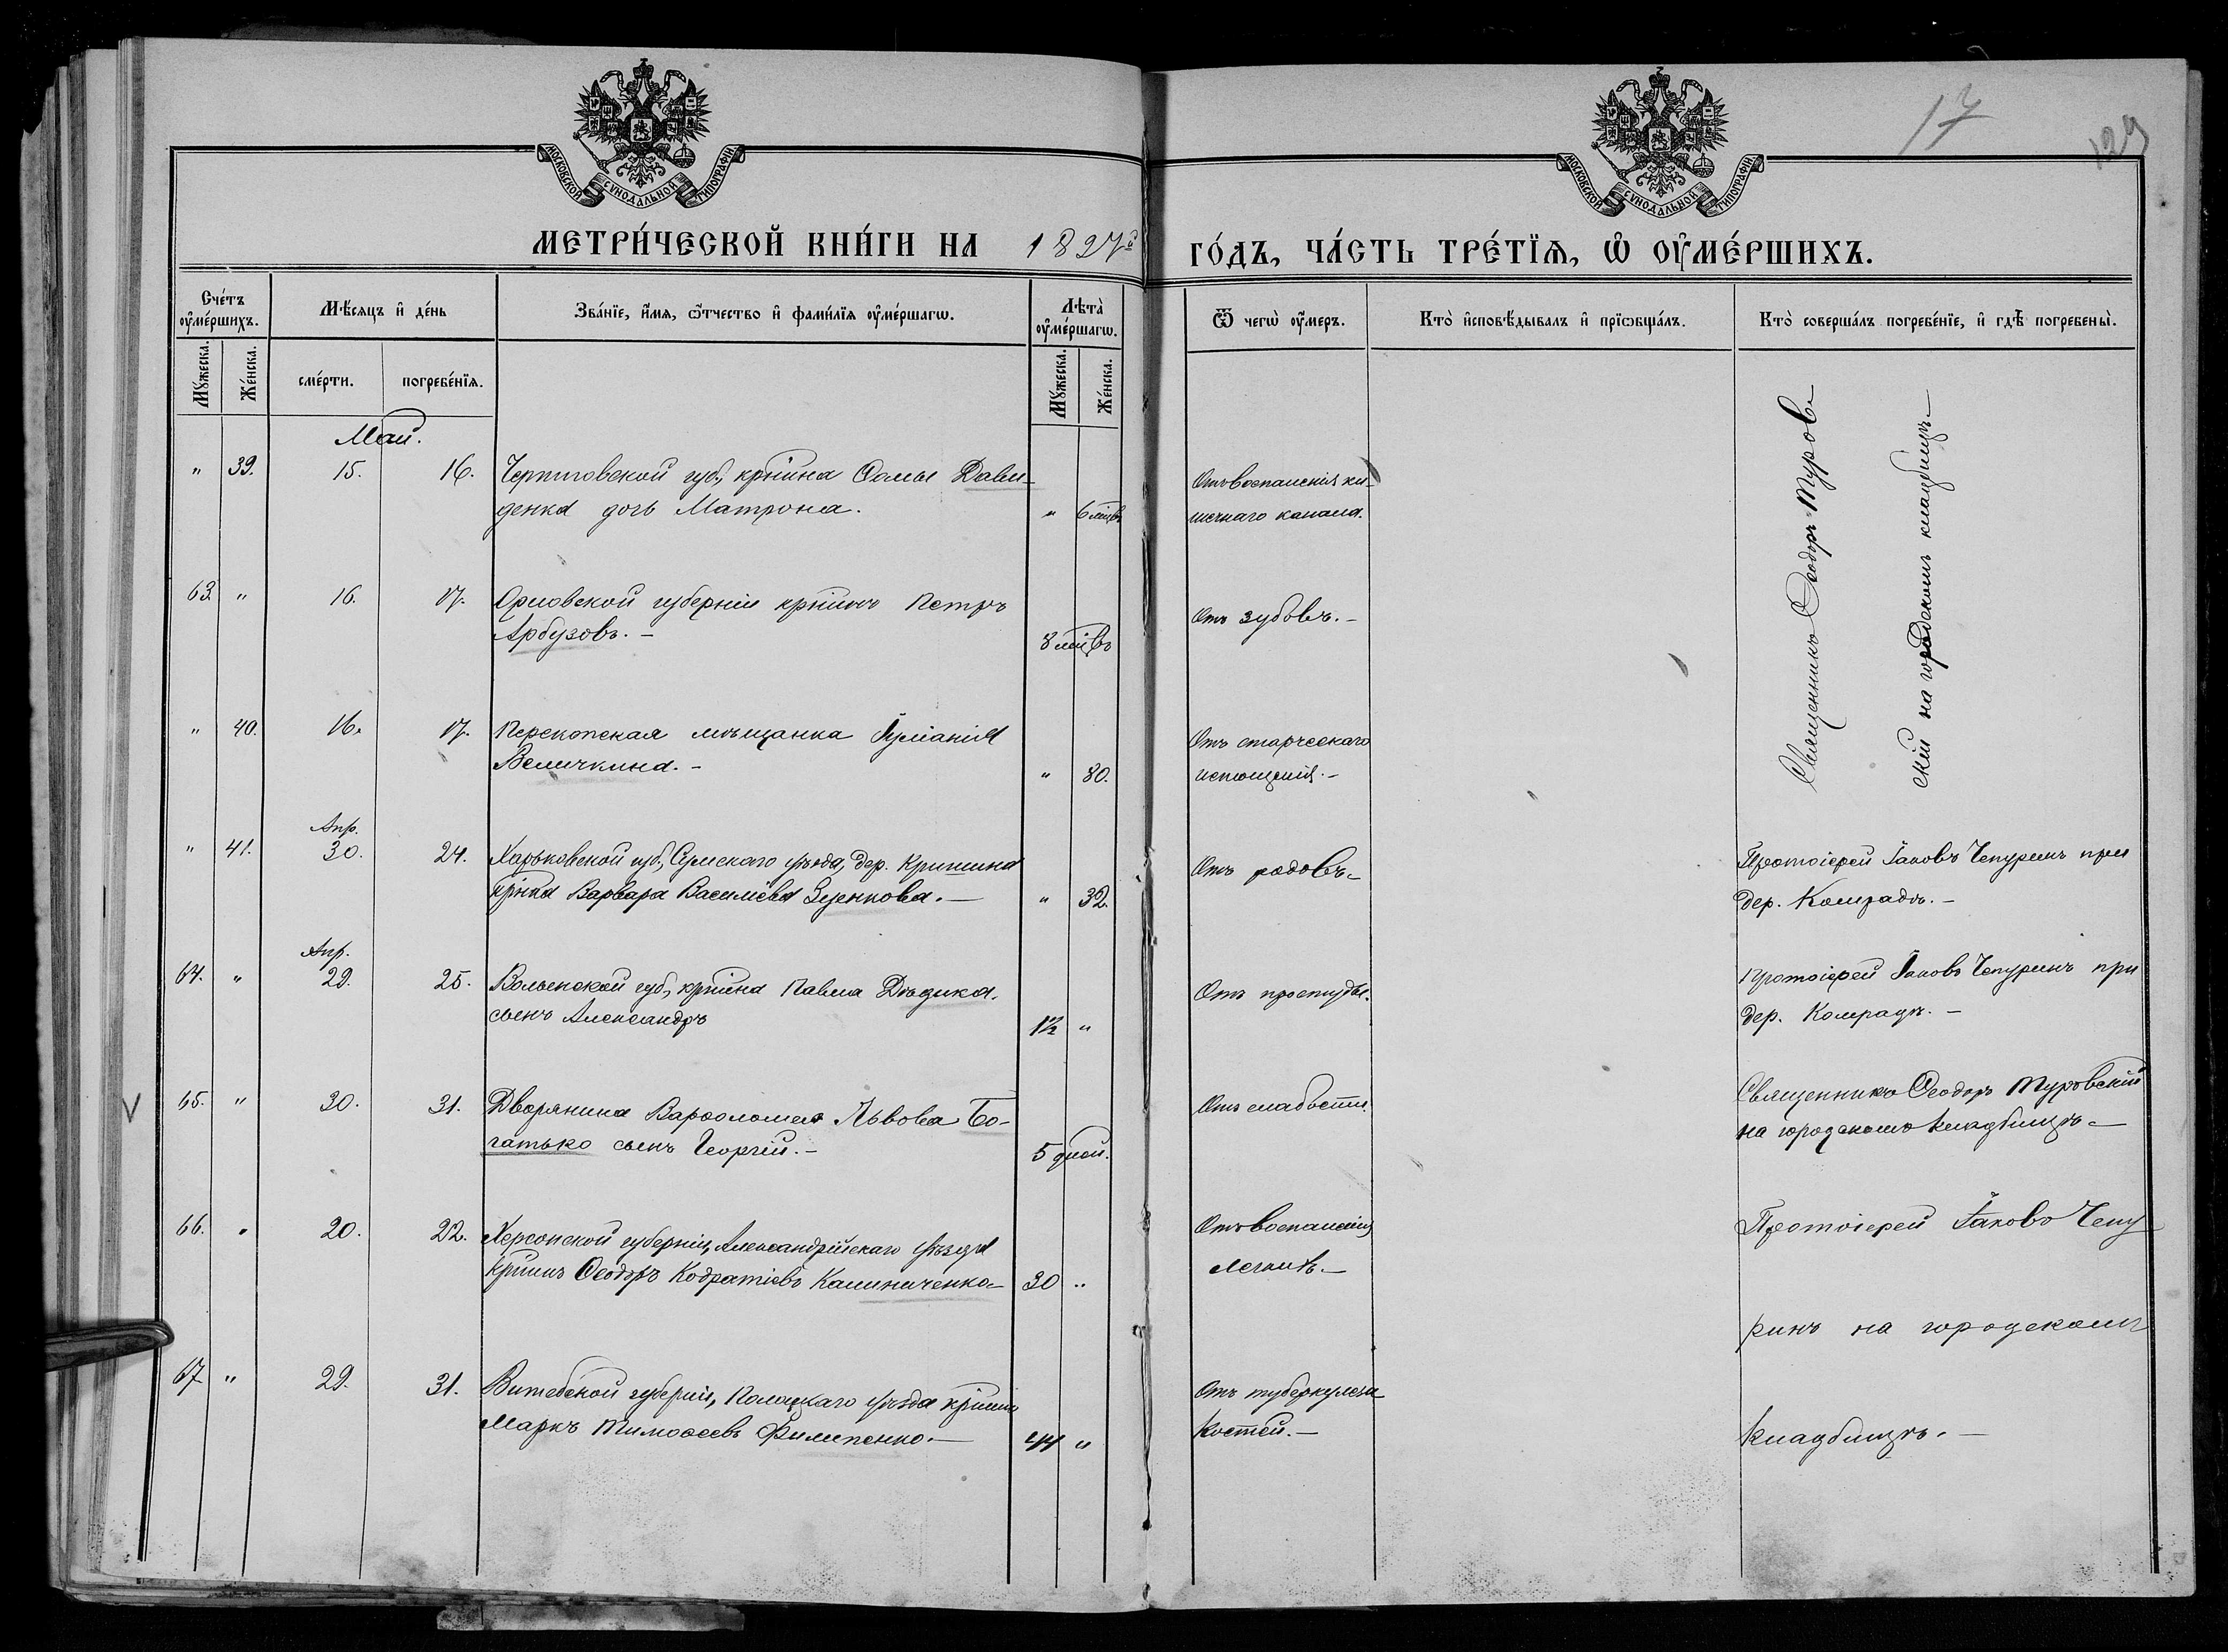 МОСКОВСКОЙ СѴНОДАЛЬНОЙ ТИПОГРАФІИ
МОСКОВСКОЙ СѴНОДАЛЬНОЙ ТИПОГРАФІИ
17
129
МЕТРИ́ЧЕСКОЙ КНИ́ГИ НА 1897й ГО́ДЪ, ЧА́СТЬ ТРЕ́ТЇѦ, Ѡ҆ ОУ҆МЕ́РШИХЪ.
Сче́тъ оу҆ме́ршихъ.
Мꙋ́жеска.
Же́нска.
Мѣ́сяцъ и҆ де́нь
сме́рти.
погребе́нїѧ.
Зва́нїе, и҆́мѧ, ѻ҆́тчество и҆ фами́лїѧ оу҆ме́ршагѡ.
Лѣта̀ оу҆ме́ршагѡ.
Мꙋ́жеска.
Же́нска.
Ѿ чегѡ̀ оу҆́меръ.
Кто̀ и҆сповѣ́дывалъ и҆ прїѡбща́лъ.
Кто̀ соверша́лъ погребе́нїе, и҆ гдѣ̀ погребены̀.
Май.
" 39. 15. 16. Черниговской губ., крнина Ѳомы Дави-
денка дочь Матрона. " 6 мцвъ
Отъ воспаленія ки-
шечнаго канала.
Священникъ Ѳеодоръ Туров-
скій на городскомъ кладбищѣ-
63. " 16. 17. Орловской губерніи крнинъ Петръ
Арбузовъ.- 8 мцвъ
Отъ зубовъ.-
" 40. 16. 17. Перекопская мѣщанка Іуліанія
Величкина.- " 80.
Отъ старческаго
истощенія.-
Апр.
" 41. 30. 24. Харьковской губ., Сумскаго уѣзда, дер.
крнка Варвара Василіева Зеленкова.- " 32.
Отъ родовъ-
Протоіерей Іаковъ Чепуринъ при
дер. Комрадъ.-
Апр.
64. " 29. 25. Волынской губ., крнина Павла
сынъ Александръ 1½ "
Отъ простуды.
Протоіерей Іаковъ Чепуринъ при
дер. Комрадъ.-
65. " 30. 31. Дворянина Варѳоломея Львова Бо-
гатько сынъ Георгій.- 5 дней.
Отъ слабости.
Священникъ Ѳеодоръ Туровскій
на городскомъ кладбищѣ-
66. " 20. 22. Херсонской губерніи, Александрійскаго уѣзда
крнинъ Ѳеодоръ Кодратіевъ Калиниченко- 30 "
Отъ воспаленія
легкихъ.-
Протоіерей Іаковъ Чепу
ринъ на городскомъ
кладбищѣ.-
67 " 29. 31. Витебской губерніи, Полоцкаго уѣзда крнинъ
Маркъ Тимоѳеевъ Филипенко.- 44 "
Отъ туберкулеза
костей.-